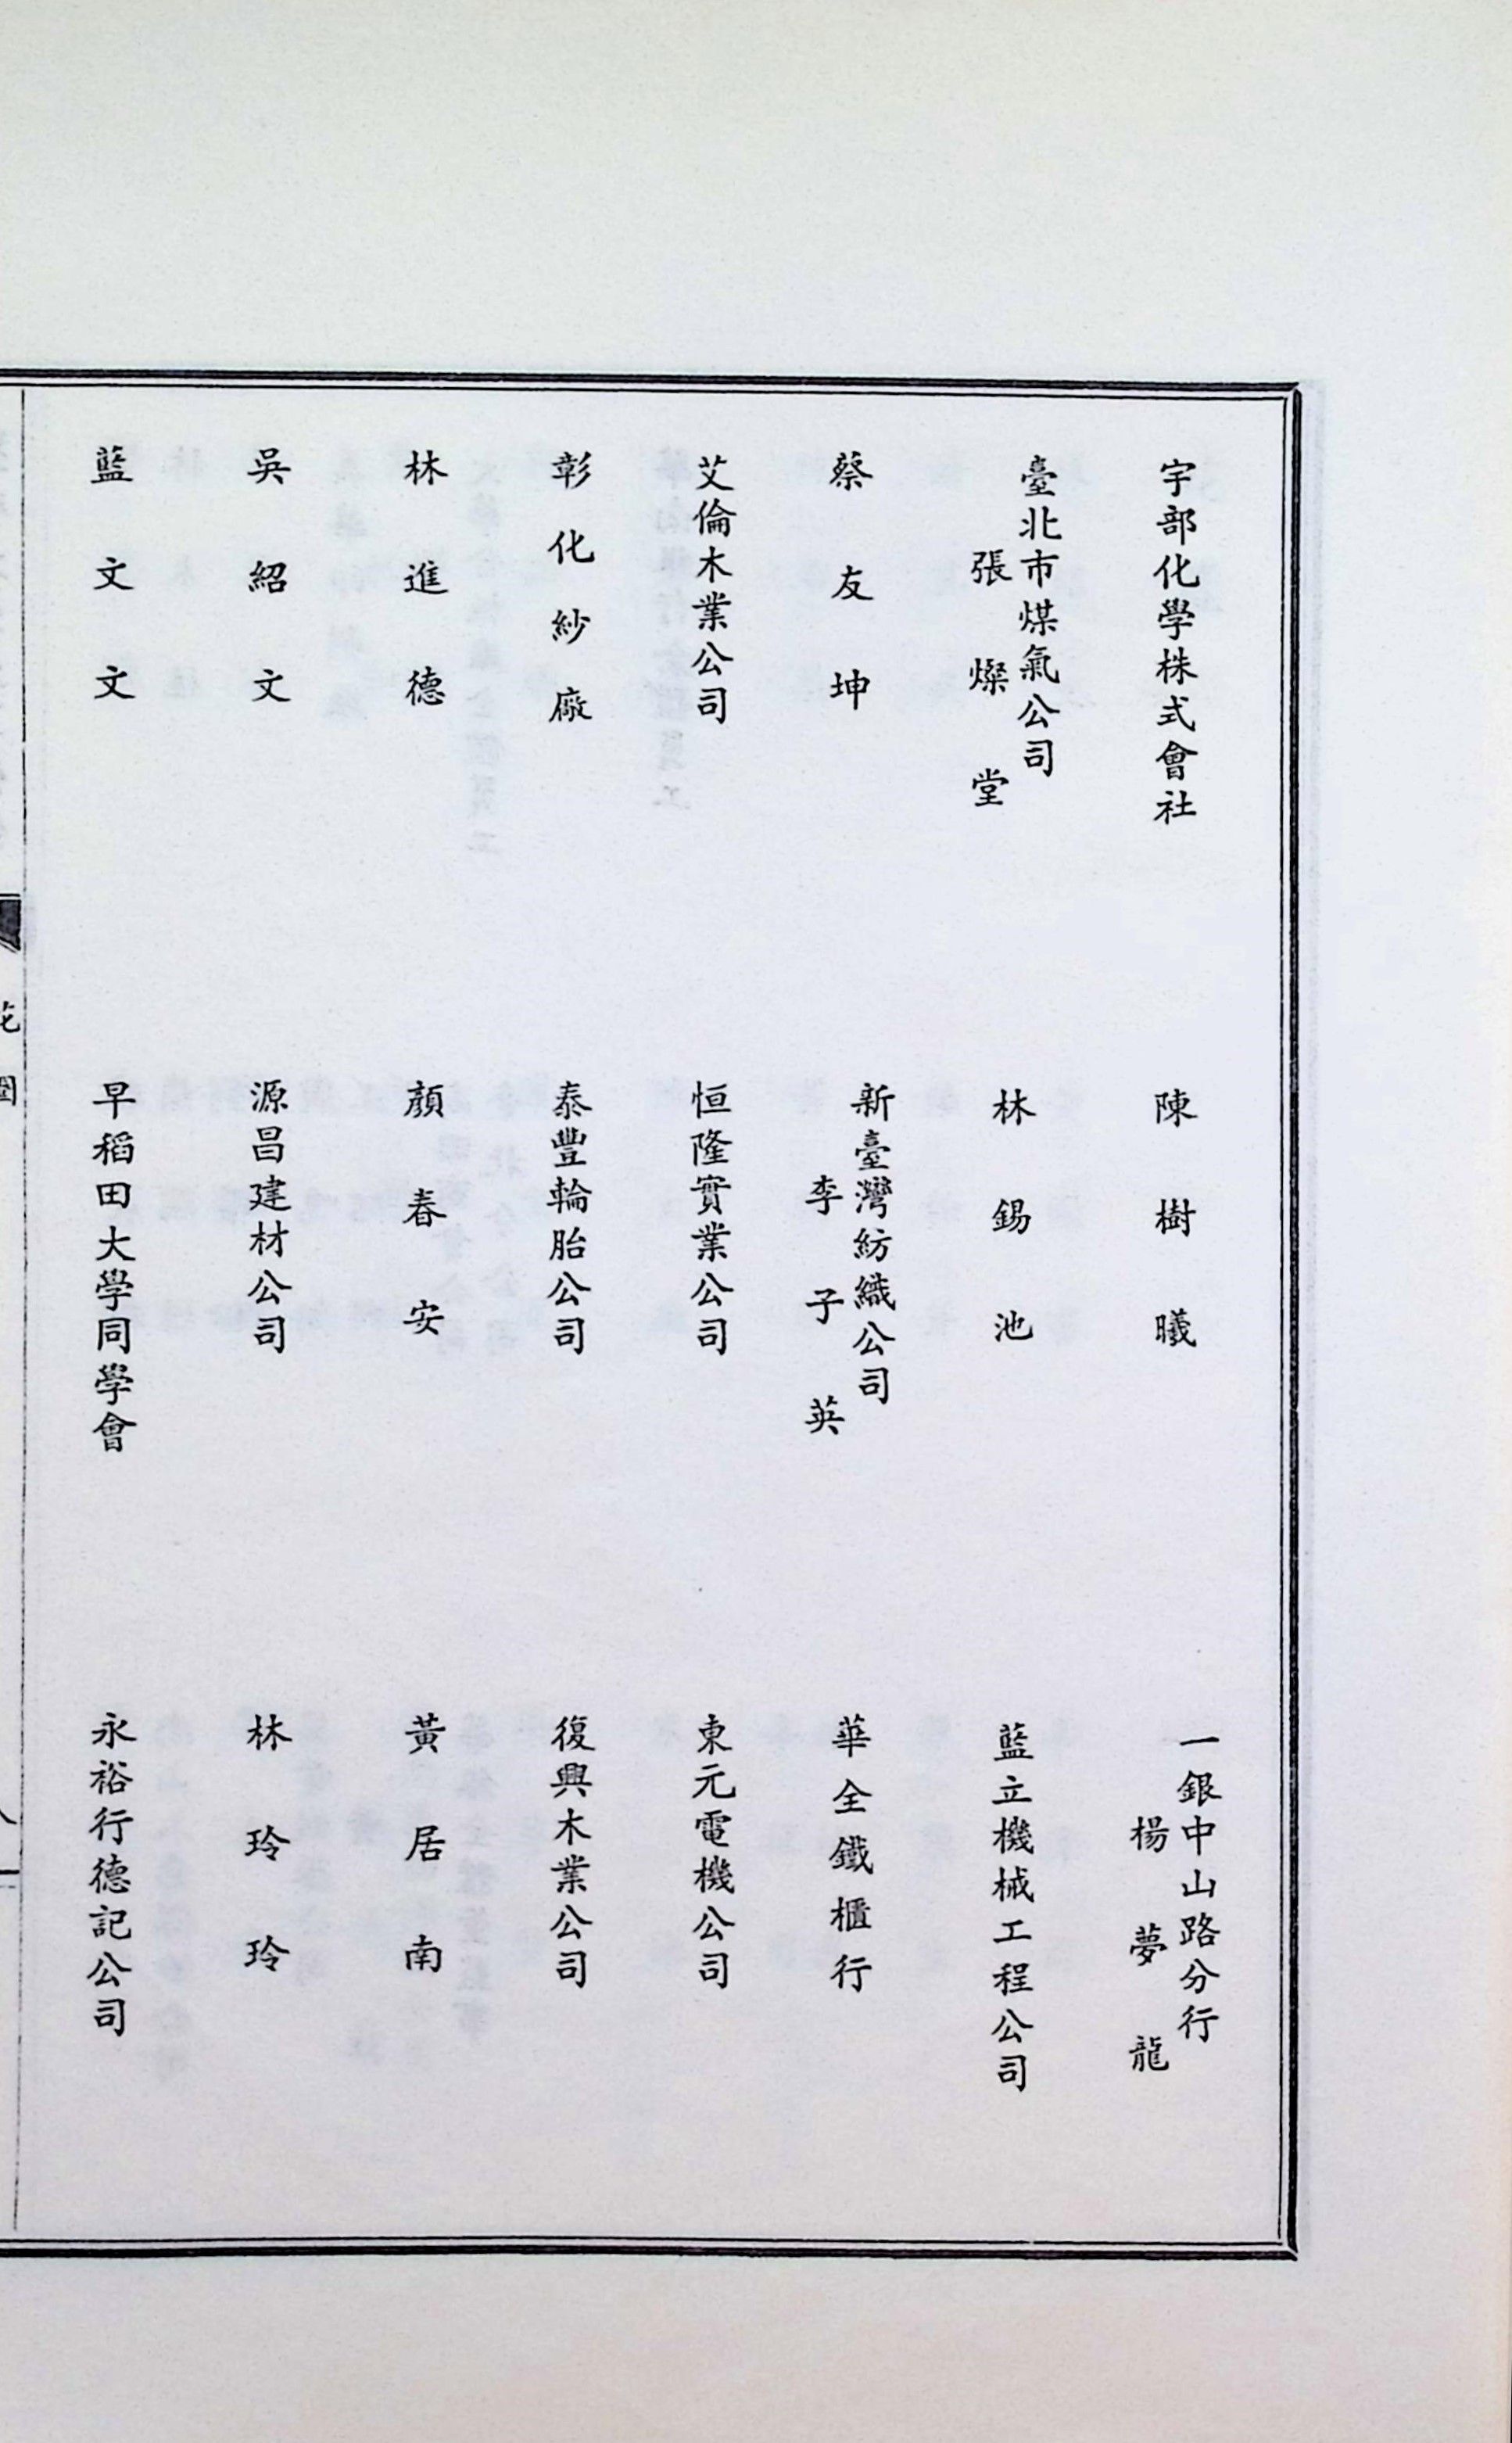 宇部化学株式會社
陳樹曦
一銀中山路分行
楊夢龍
臺北市煤氣公司
張燦堂
林錫池
藍立機械工程公司
蔡友坤
新臺灣紡織公司
李子英
華全鐵櫃行
艾倫木業公司
恒隆實業公司
東元電機公司
彰化紗廠
泰豐輪胎公司
復興木業公司
林進德
顏春安
黃居南
吳紹文
源昌建材公司
林玲玲
藍文文
早稻田大学同學會
永裕行德記公司